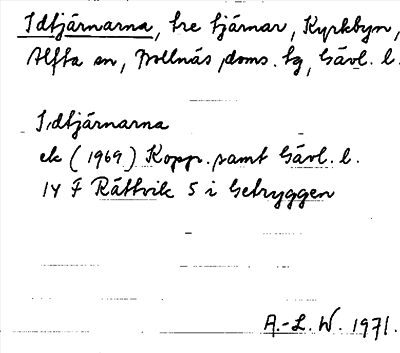 Idtjärnarna, tre tjärnar, Kyrkbyn,
Alfta sn, Bollnäs doms. tg, Gävl. l.
Idtjärnarna
ek (1969) Kopp. samt Gävl. l.
14 F Rättvik 5 i Getryggen
A.-L. W. 1971.